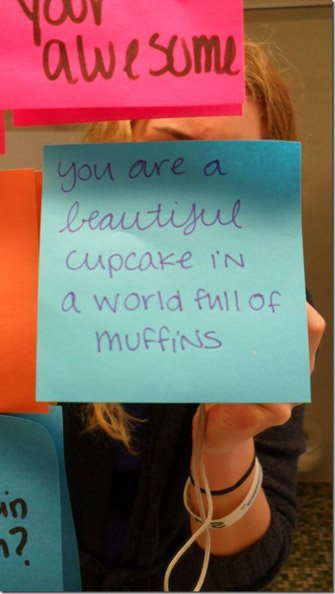 your
awesome
you are a
beautiful
cupcake in
a world full of
muffins